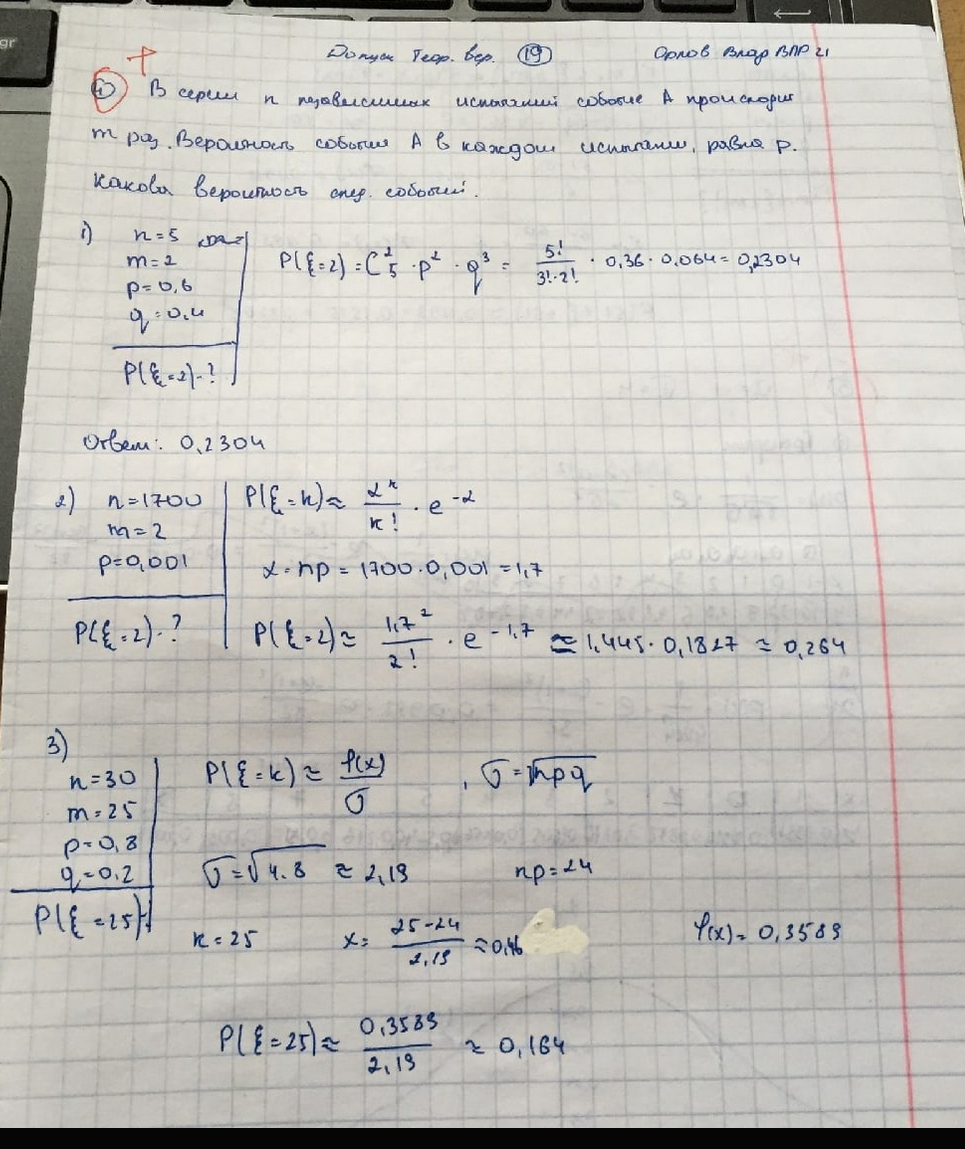 Допуск Теор. вер. 19 Орлов Влад ВПР 21
+
1) В серии n независимых испытаний событие A происходит
m раз. Вероятность событие A в каждом испытании, равна p.
Какова вероятность след. событий.
1) n=5
m=2
p=0,6
q=0,4
P(ξ=2)-?
P(ξ=2) = C²₅ · p² · q³ = 5!/(3!·2!) · 0,36 · 0,064 = 0,2304
Ответ: 0,2304
2) n=1700
m=2
p=0,001
P(ξ=2)-?
P(ξ=k) ≈ λᵏ/k! · e^(-λ)
λ=np = 1700·0,001 = 1,7
P(ξ=2) ≈ 1,7²/2! · e^(-1,7) ≈ 1,445 · 0,1827 ≈ 0,264
3)
n=30
m=25
p=0,8
q=0,2
P(ξ=25)-?
P(ξ=k) ≈ φ(x)/σ , σ=√npq
σ=√4.8 ≈ 2,19 np=24
k=25 x= (25-24)/2,19 ≈ 0,46 φ(x)= 0,3589
P(ξ=25) ≈ 0,3589/2,19 ≈ 0,164